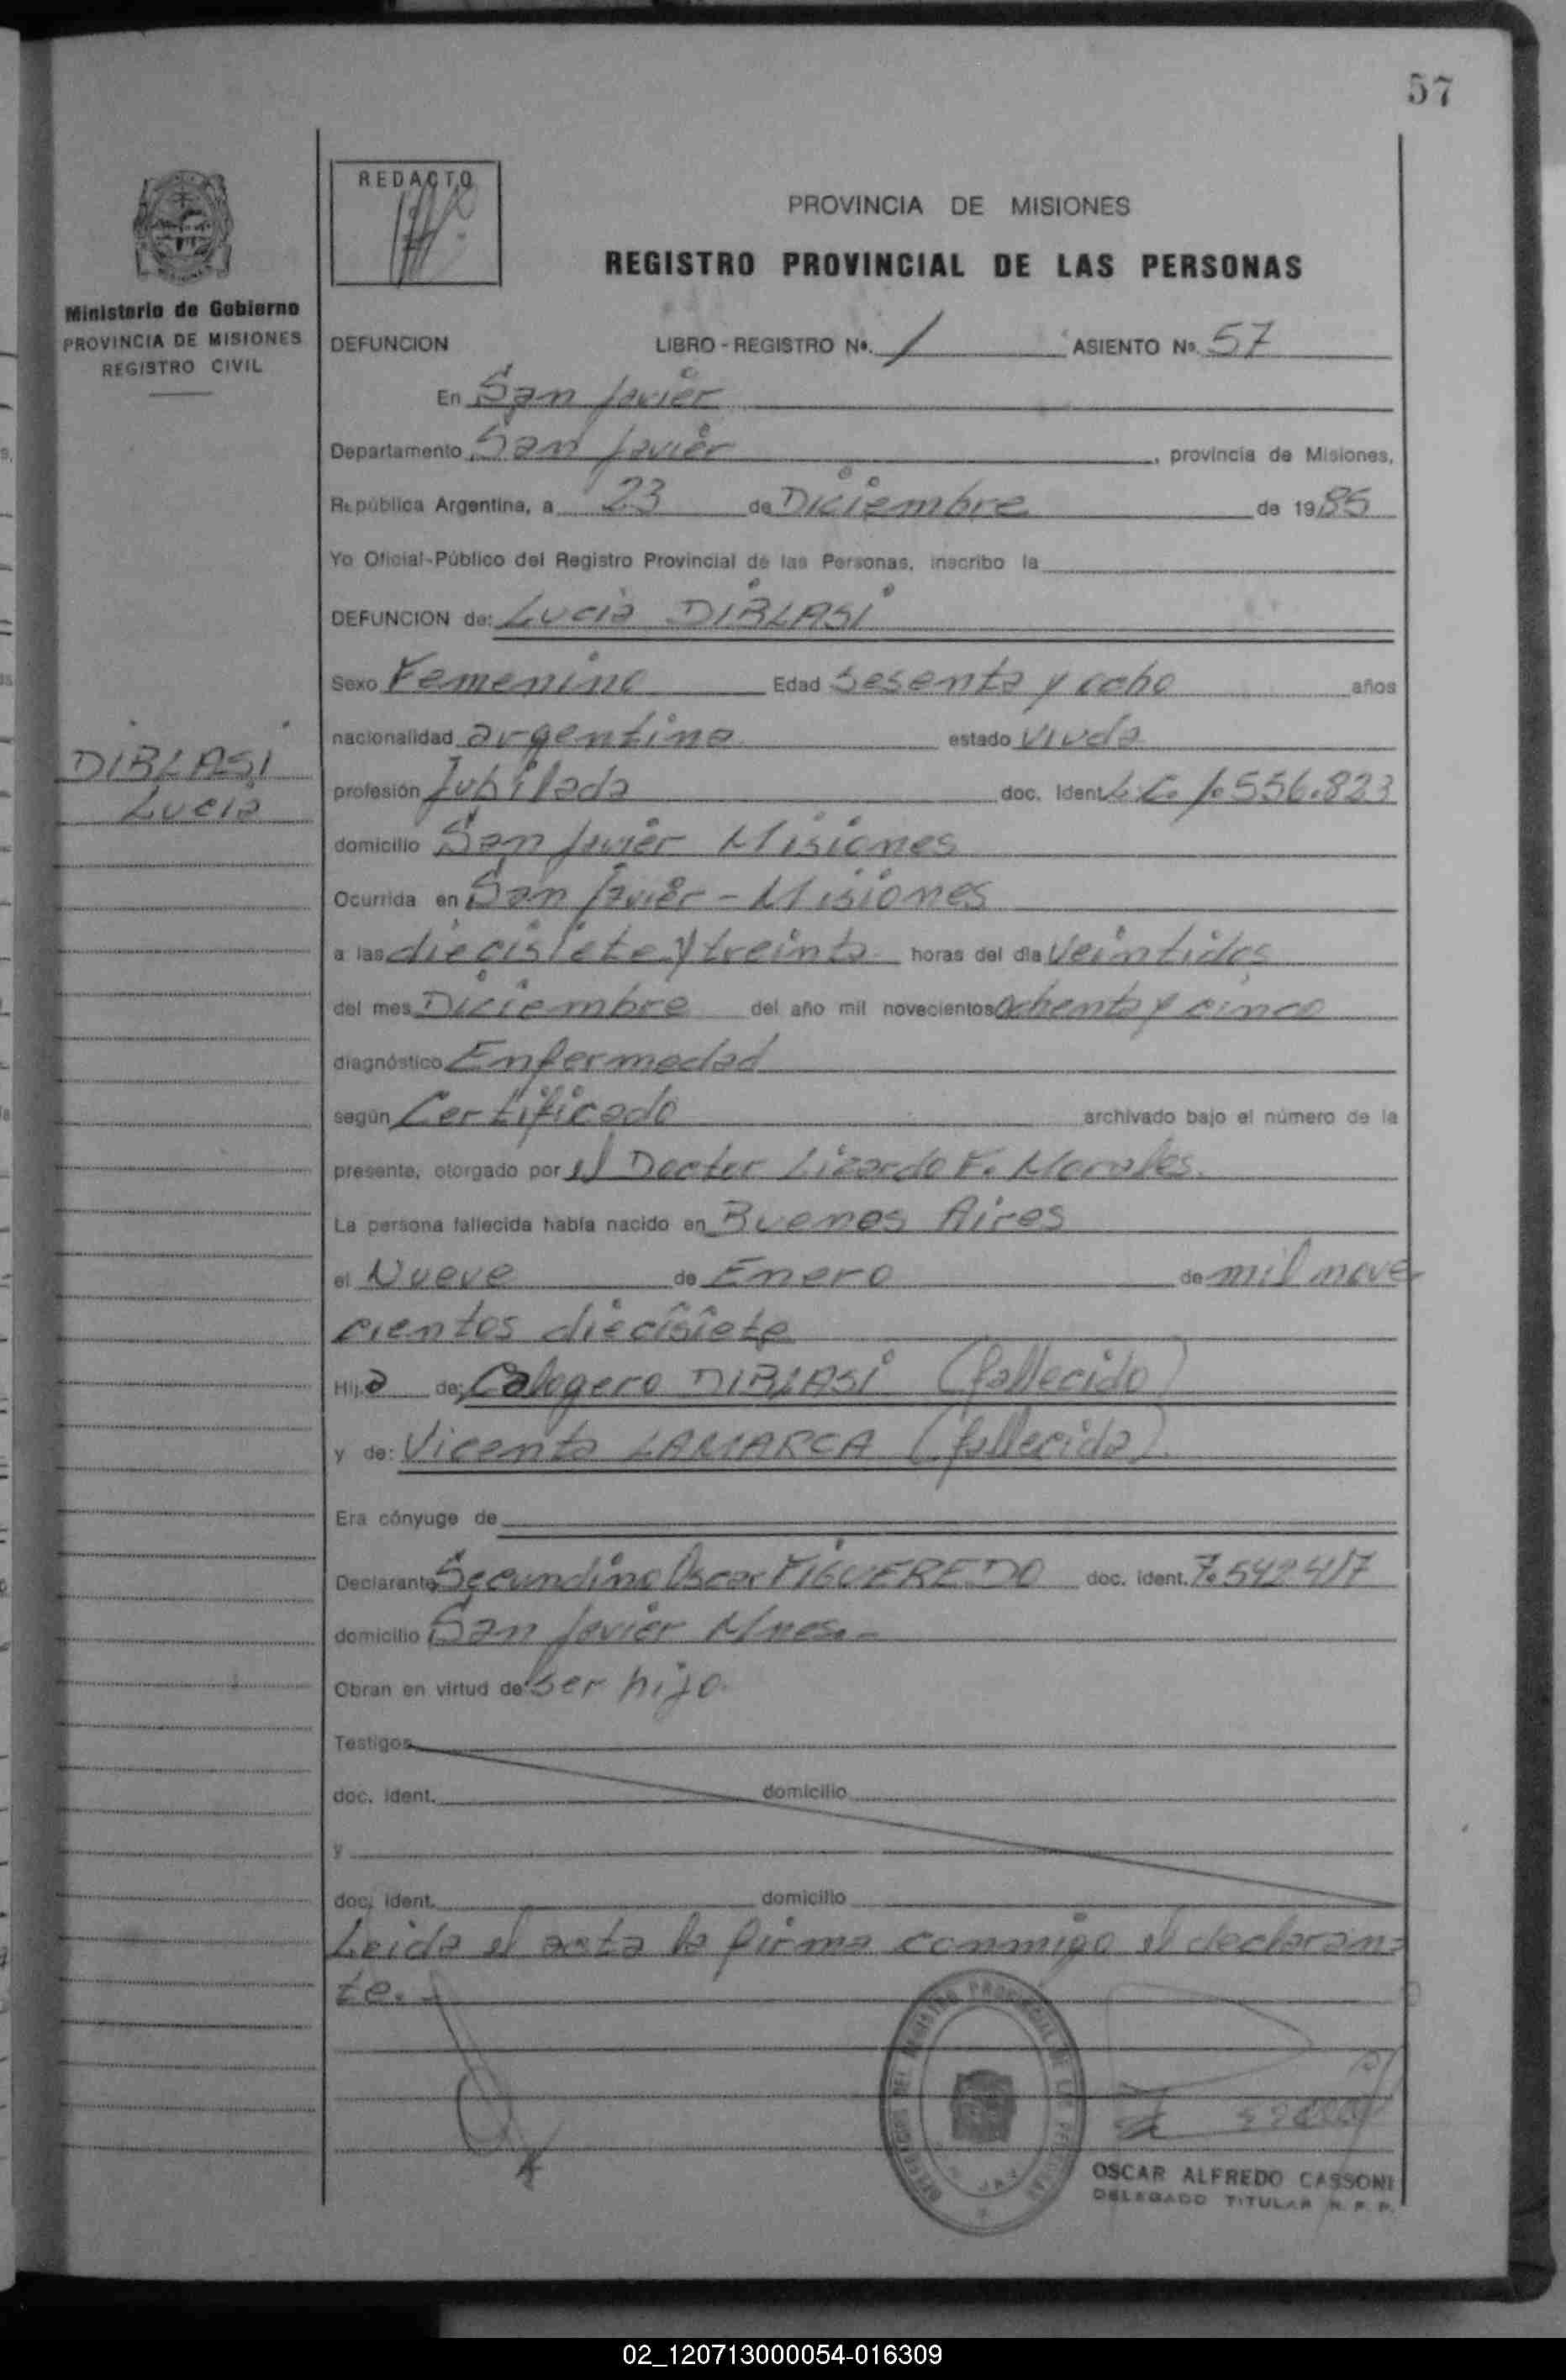 57
REDACTO
PROVINCIA DE MISIONES
REGISTRO PROVINCIAL DE LAS PERSONAS
Ministerio de Gobierno
PROVINCIA DE MISIONES
REGISTRO CIVIL
DEFUNCION LIBRO - REGISTRO Nº. 1 ASIENTO Nº. 57
En San Javier
Departamento San Javier, provincia de Misiones,
República Argentina, a 23 de Diciembre de 1985
Yo Oficial-Público del Registro Provincial de las Personas, inscribo la
DEFUNCION de: Lucia DIBLASI
Sexo Femenino Edad Sesenta y ocho años
nacionalidad argentina estado Viuda
DIBLASI
Lucia
profesión Jubilada doc. Ident L.C. 1.556.823
domicilio San Javier Misiones
Ocurrida en San Javier - Misiones
a las diecisiete y treinta horas del día Veintidos
del mes Diciembre del año mil novecientos Ochenta y cinco
diagnóstico Enfermedad
según Certificado archivado bajo el número de la
presente, otorgado por el Doctor Lizardo F. Morales.
La persona fallecida había nacido en Buenos Aires
el Nueve de Enero de mil nove-
cientos diecisiete
Hija de: Calogero DIBLASI (fallecido)
y de: Vicenta LAMARCA (fallecida).
Era cónyuge de
Declarante Secundino Oscar FIGUEREDO doc. ident. 7.542.417
domicilio San Javier Mnes.-
Obran en virtud de ser hijo.
Testigos
doc. ident. domicilio
y
doc. ident. domicilio
Leida el acta la firma conmigo el declaran=
te.-
DIRECCION DEL REGISTRO PROVINCIAL DE LAS PERSONAS
OSCAR ALFREDO CASSONI
DELEGADO TITULAR R. P. P.
02_120713000054-016309